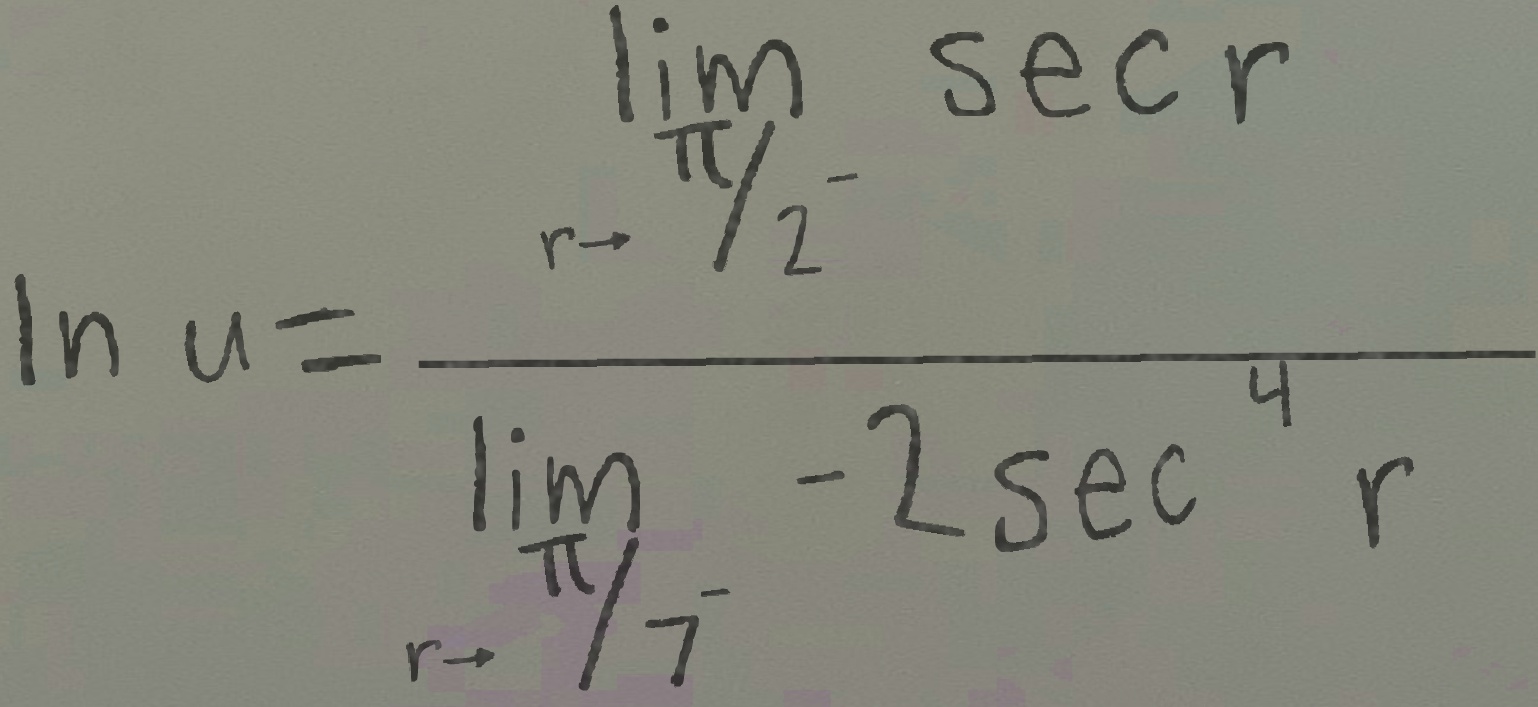 ln u = \frac{\lim_{r \to \pi/2^-} sec r}{\lim_{r \to \pi/7^-} -2 sec^4 r}